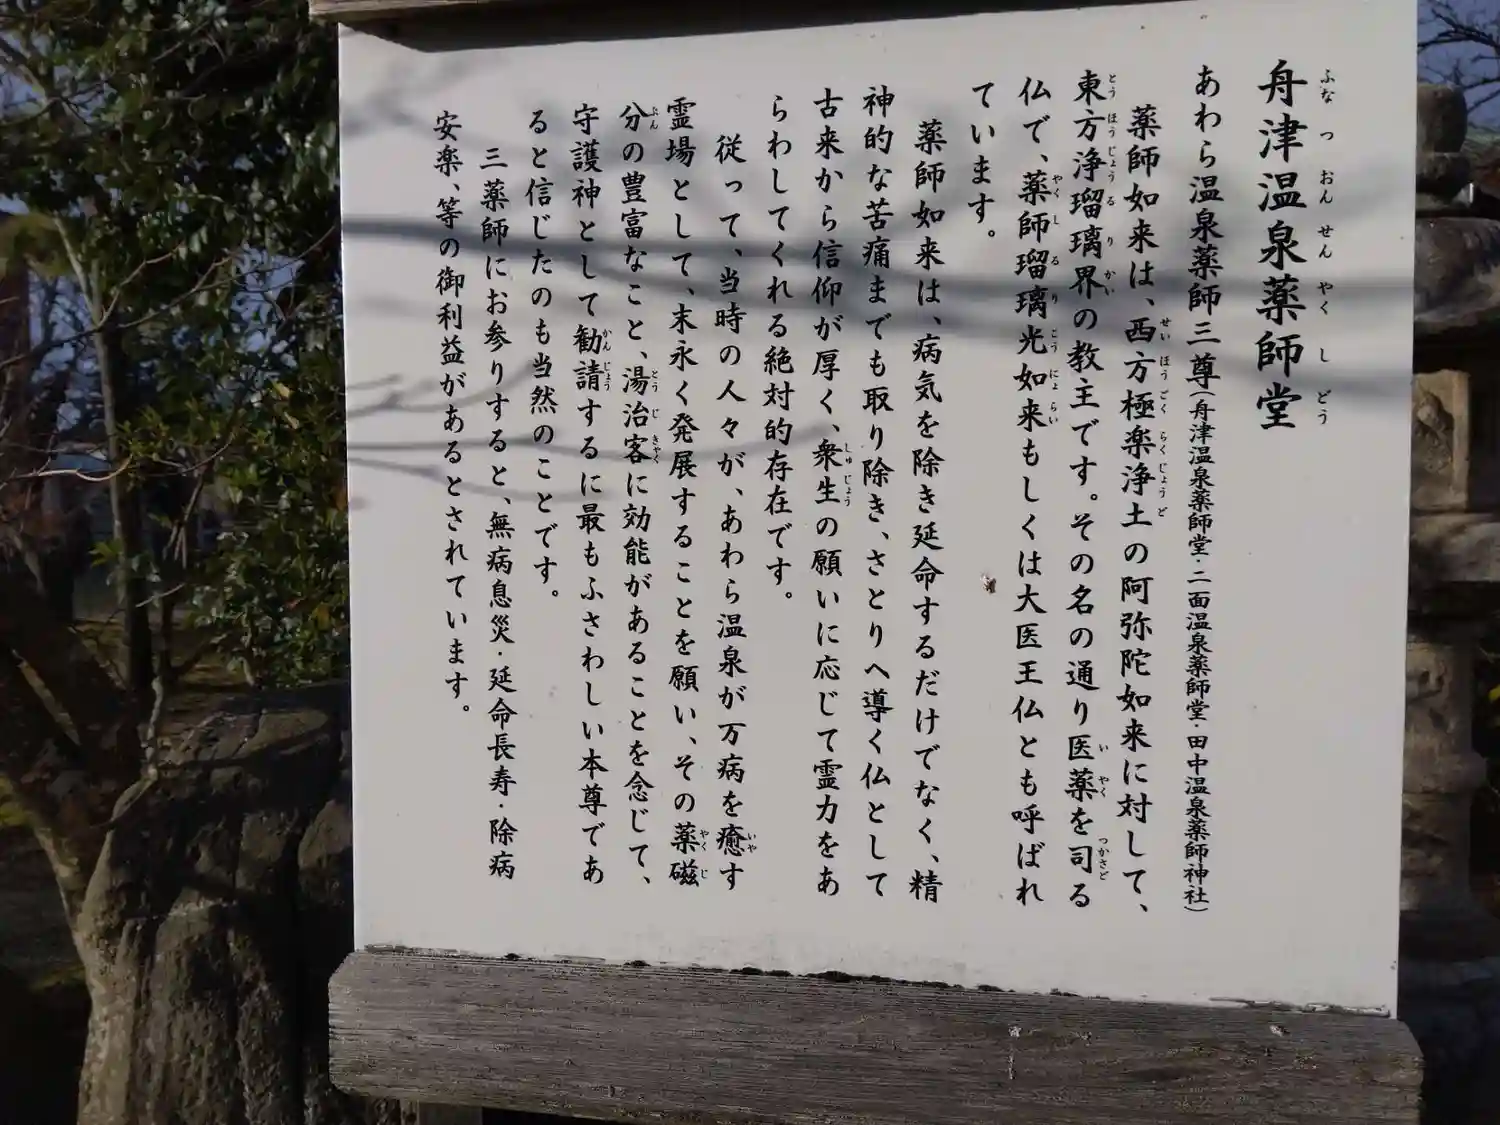 舟津温泉薬師堂
あわら温泉薬師三尊(舟津温泉薬師堂・二面温泉薬師堂・田中温泉薬師神社)
薬師如来は、西方極楽浄土の阿弥陀如来に対して、
東方浄瑠璃界の教主です。その名の通り医薬を司る
仏で、薬師瑠璃光如来もしくは大医王仏とも呼ばれ
ています。
薬師如来は、病気を除き延命するだけでなく、精
神的な苦痛までも取り除き、さとりへ導く仏として
古来から信仰が厚く、衆生の願いに応じて霊力をあ
らわしてくれる絶対的存在です。
従って、当時の人々が、あわら温泉が万病を癒す
霊場として、末永く発展することを願い、その薬磁
分の豊富なこと、湯治客に効能があることを念じて、
守護神として勧請するに最もふさわしい本尊であ
ると信じたのも当然のことです。
三薬師にお参りすると、無病息災・延命長寿・除病
安楽、等の御利益があるとされています。